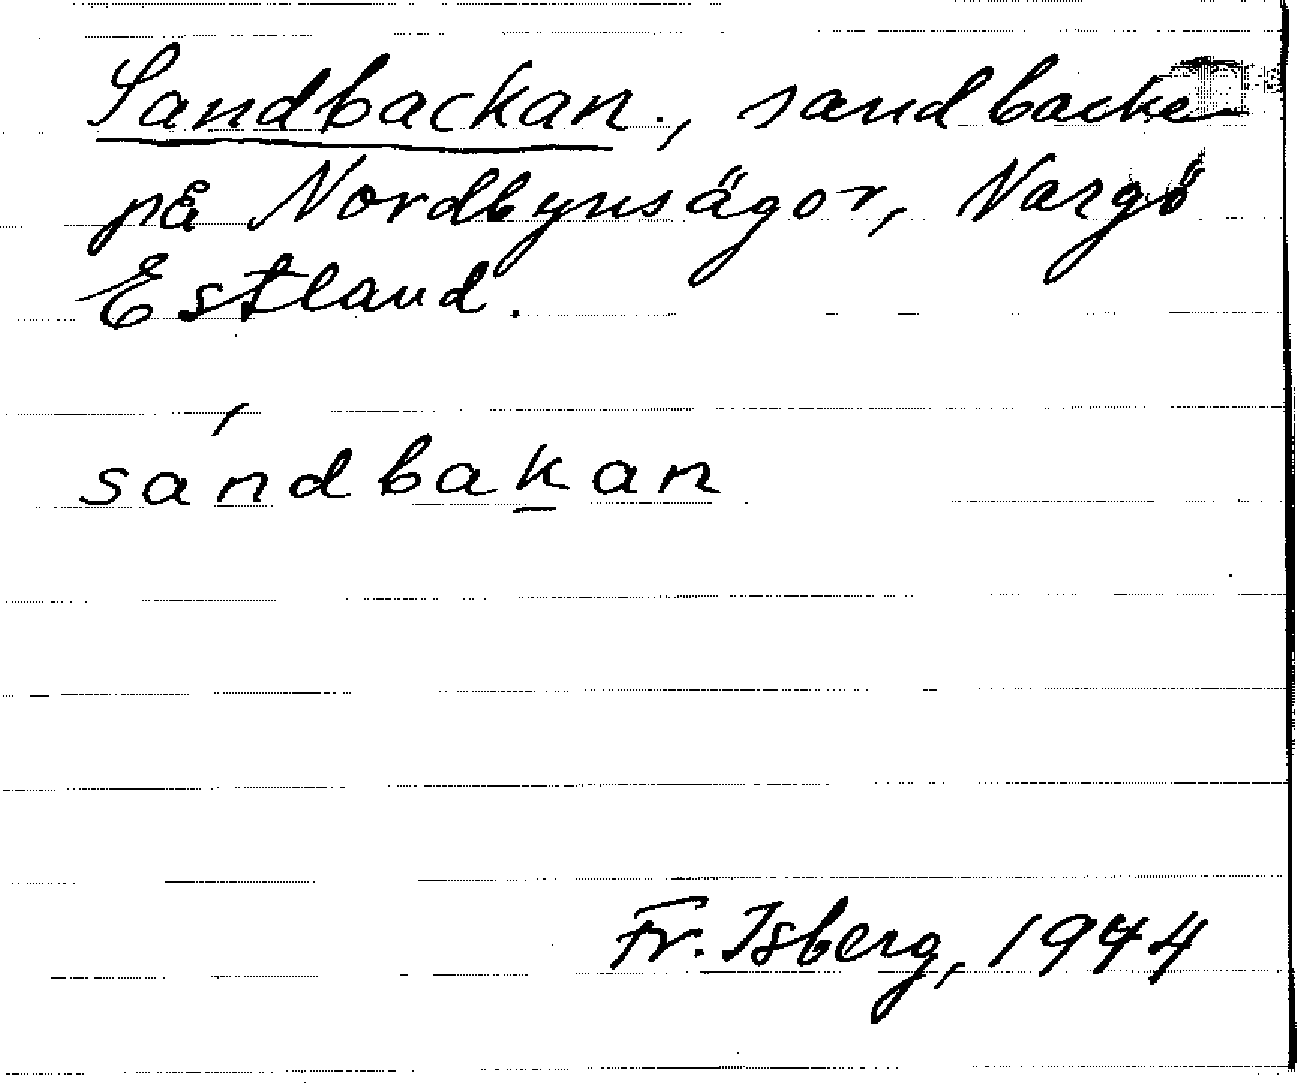 Sandbackan., sandbacke
på Nordbynsägor, Nargö
Estland.
sándbakan
Fr. Isberg, 1944